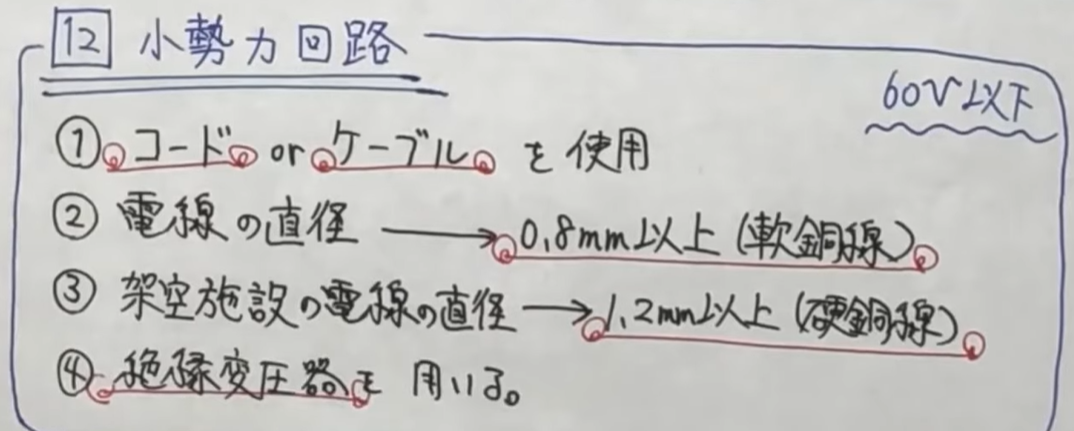 12 小勢力回路
60V以下
① コード or ケーブル を使用
② 電線の直径 → 0.8mm以上(軟銅線)
③ 架空施設の電線の直径 → 1.2mm以上(硬銅線)
④ 絶縁変圧器を用いる。